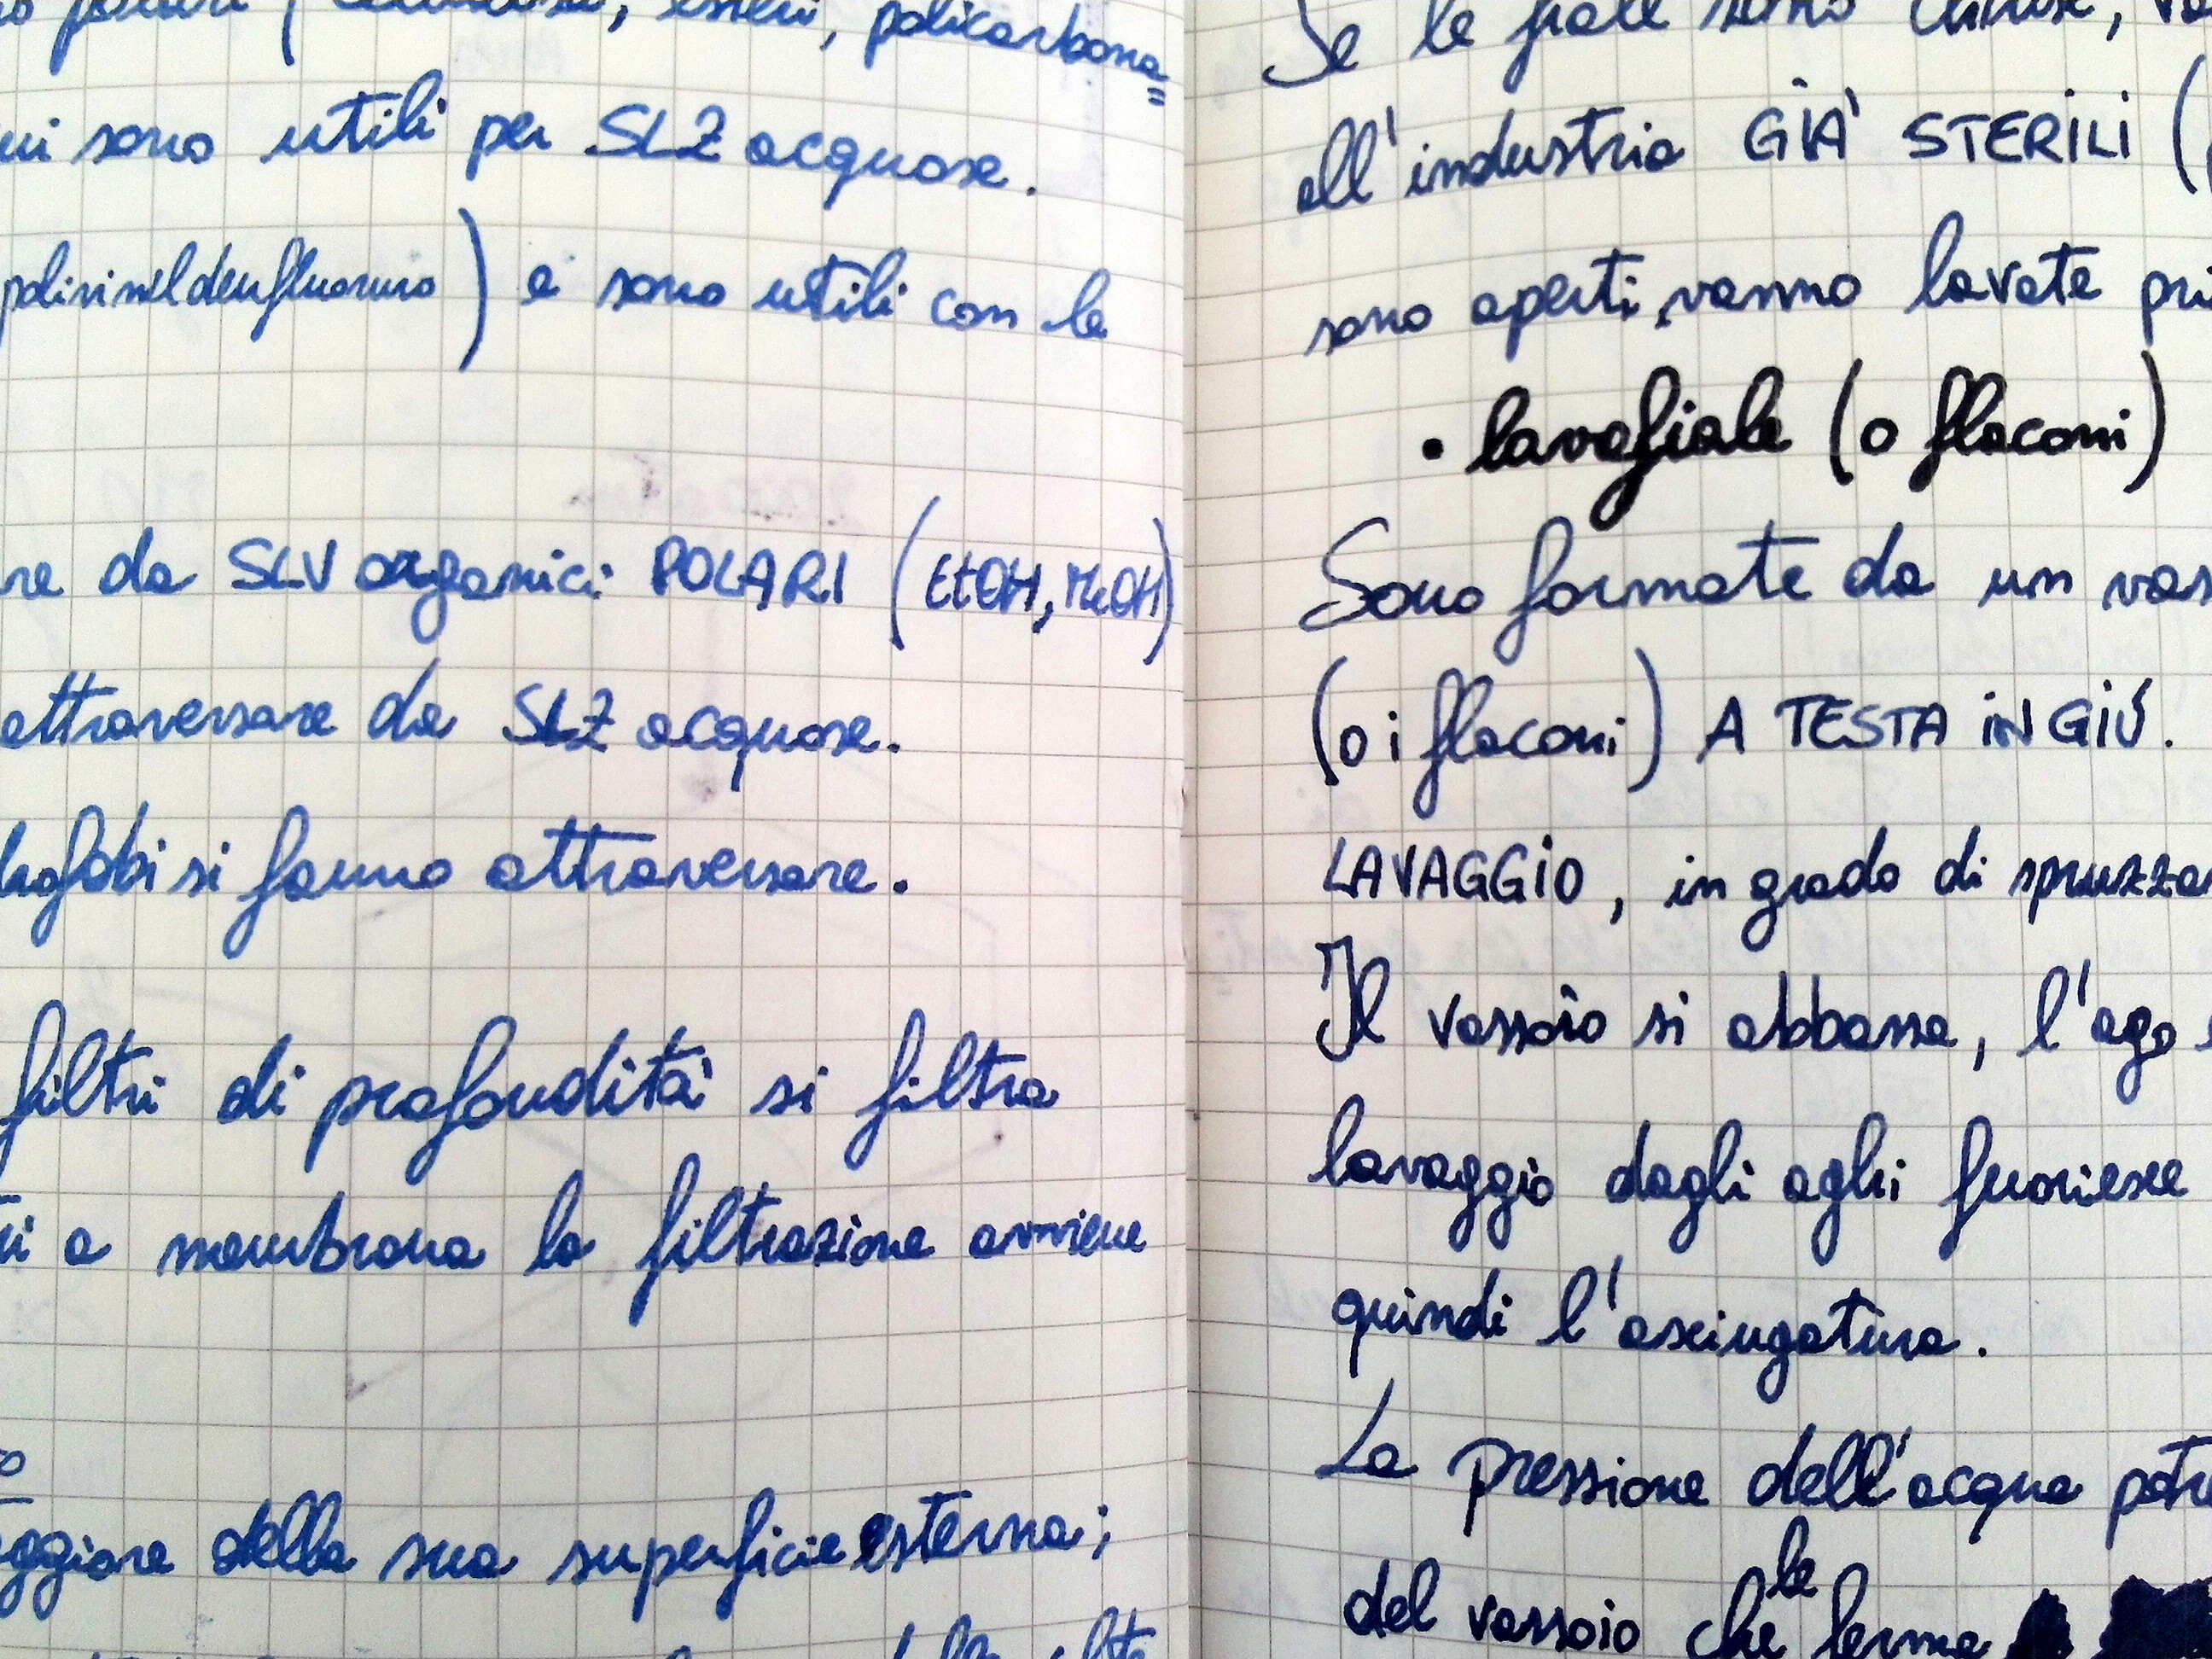 policarbona=
sono utili per SLZ acquose.
) e sono utili con le
re da SLV organici POLARI (EtOH, MeOH)
attraversare da SLZ acquose.
si fanno attraversare.
filtri di profondità si filtra
a membrana la filtrazione avviene
ggiore della sua superficie esterna;
Se le fiale sono chiuse, va
all'industria GIÀ STERILI (
sono aperti, vanno lavate pri
• lavafiale (o flaconi)
Sono formate da un vas
(o i flaconi) A TESTA IN GIÙ.
LAVAGGIO, in grado di spruzzar
Il vassoio si abbassa, l'ago
lavaggio dagli aghi fuoriesce
quindi l'asciugatura.
La pressione dell'acqua potre
del vassoio che le ferma